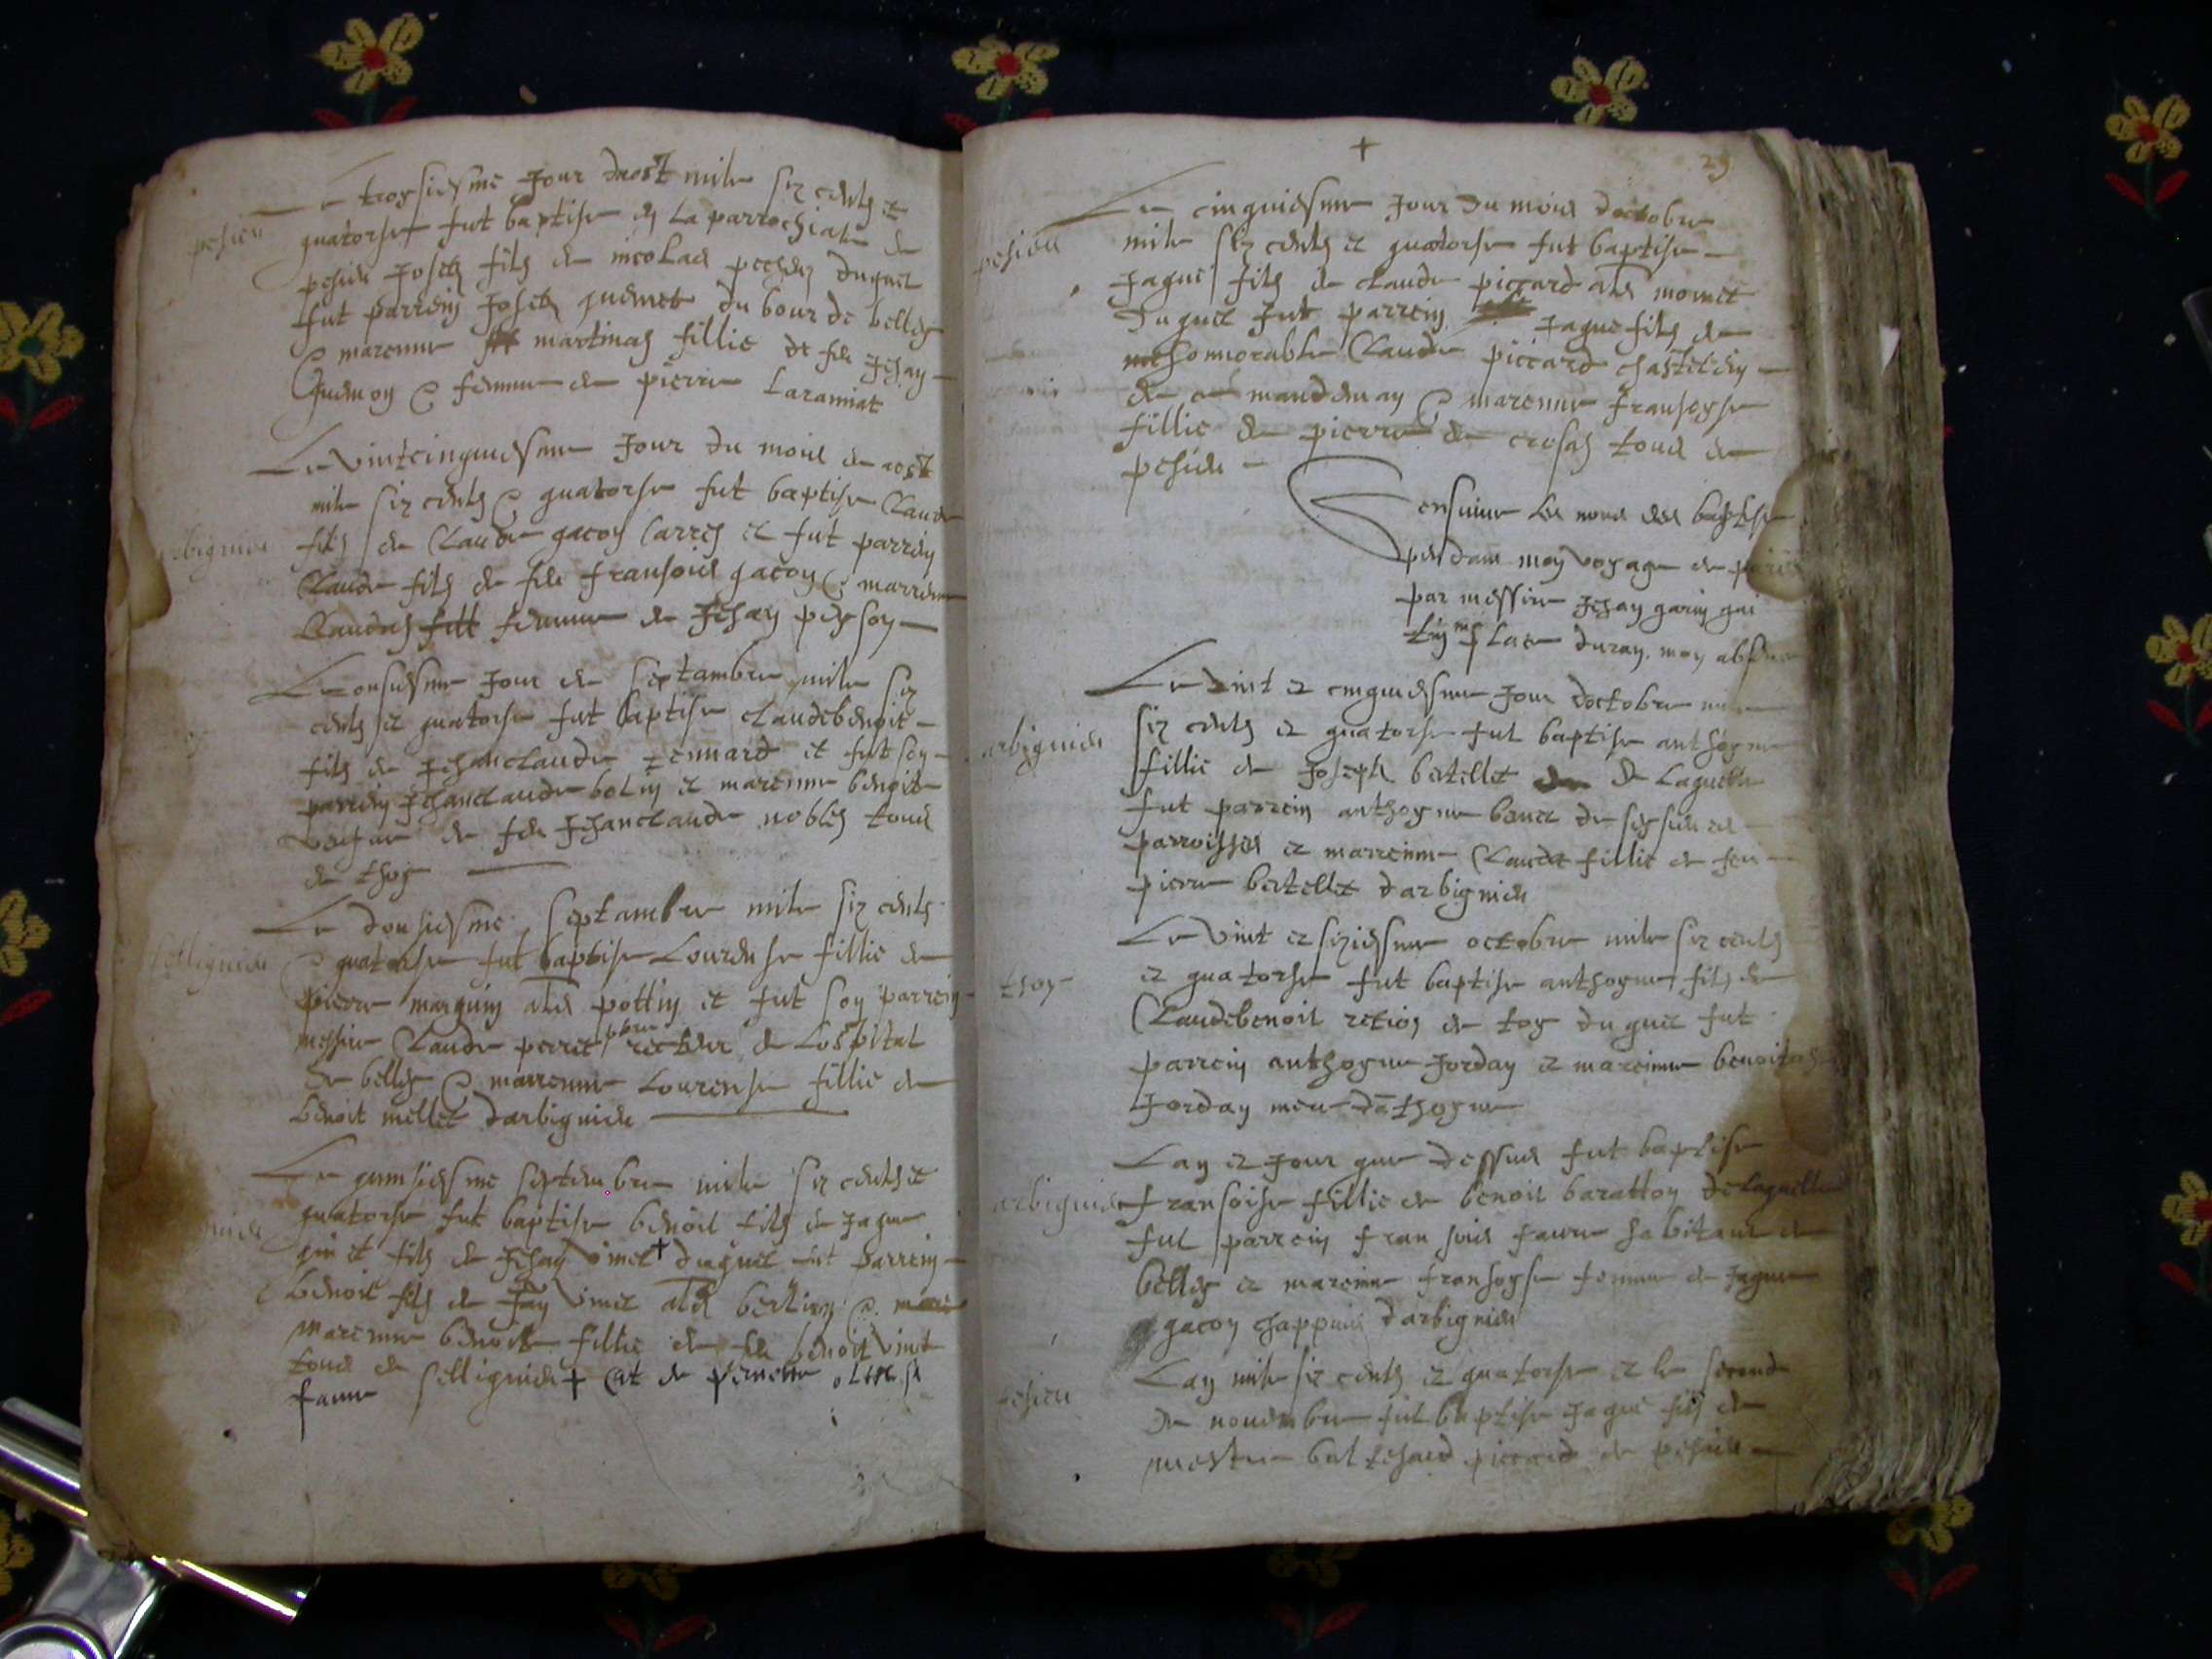 Le troysiesme Jour daost mile six cents et
pesieu
quatorse fut baptise en La parrochiale de
pesieu Joseth fils de nicolas duquel
fut parrein Joseth quemet du bour de belley
et marenne martinaz fillie de feu Jehan
et femme de pierre
Le vintcinquiesme Jour du mois de aost
mile six cents et quatorse fut baptise Claude
arbignieu
fils de Claude gacon et fut parrein
Claude fils de feu fransois gacon et marrenne
Claudaz femme de Jehan peysson
Le onsiesme Jour de septambre mile six
cents et quatorse fut baptise claudebenoit
fils de Jehanclaude et fut son
parrein Jehanclaude bolin et marenne benoite
de feu Jehanclaude tous
de thoy
Le dousiesme septambre mile six cents
sellignieu
et quatorse fut baptise Lourense fillie de
pierre marquin als pottin et fut son parrein
messire Claude perret pbre recteur de Lospital
de belley et marrenne Lourense fillie de
benoit mellet darbignieu
Le quinsiesme septembre mile six cents et
quatorse fut baptise benoit fils de Jaque
fils de Jehan vinet + duquel fut parrein
benoit fils de Jan vinet als et
marenne benoite fillie de feu benoit vinet
tous de sellignieu + et de pernette
faure
+
29
Le cinquiesme Jour du mois doctobre
pesieu
mile six cents et quatorse fut baptise
Jaque fils de claude piccard als momet
duquel fut parrein Jaque fils de
honnorable Claude piccard chastelein
de ce mandeman et marenne fransoyse
fillie de pierre de cresaz tous de
pesieu
Sensuive les noms des baptise
pendant mon voyage de
par messire Jehan garin qui
tin ma place duran mon absence
Le vint et cinquiesme Jour doctobre mile
arbignieu
six cents et quatorse fut baptise anthoyne
fillie de Joseph bertellet de Laquelle
fut parrein anthoyne
parroisses et marrenne Claude fillie de feu
pierre bertellet darbignieu
Le vint et siziesme octobre mile six cents
thoy
et quatorse fut baptise anthoyne fils de
Claudebenoit de toy duquel fut
parrein anthoyne Jordan et marenne benoitaz
Jordan danthoyne
Lan et Jour que dessus fut baptise
arbignieu
fransoise fillie de benoit baratton de Laquelle
fut parrein fransois faure habitant de
belley et marenne fransoyse femme de Jaque
gacon chappuis darbignieu
Lan mile six cents et quatorse et le second
pesieu
de novembre fut baptise Jaque fils de
mestre baltesard piccard de pesieu